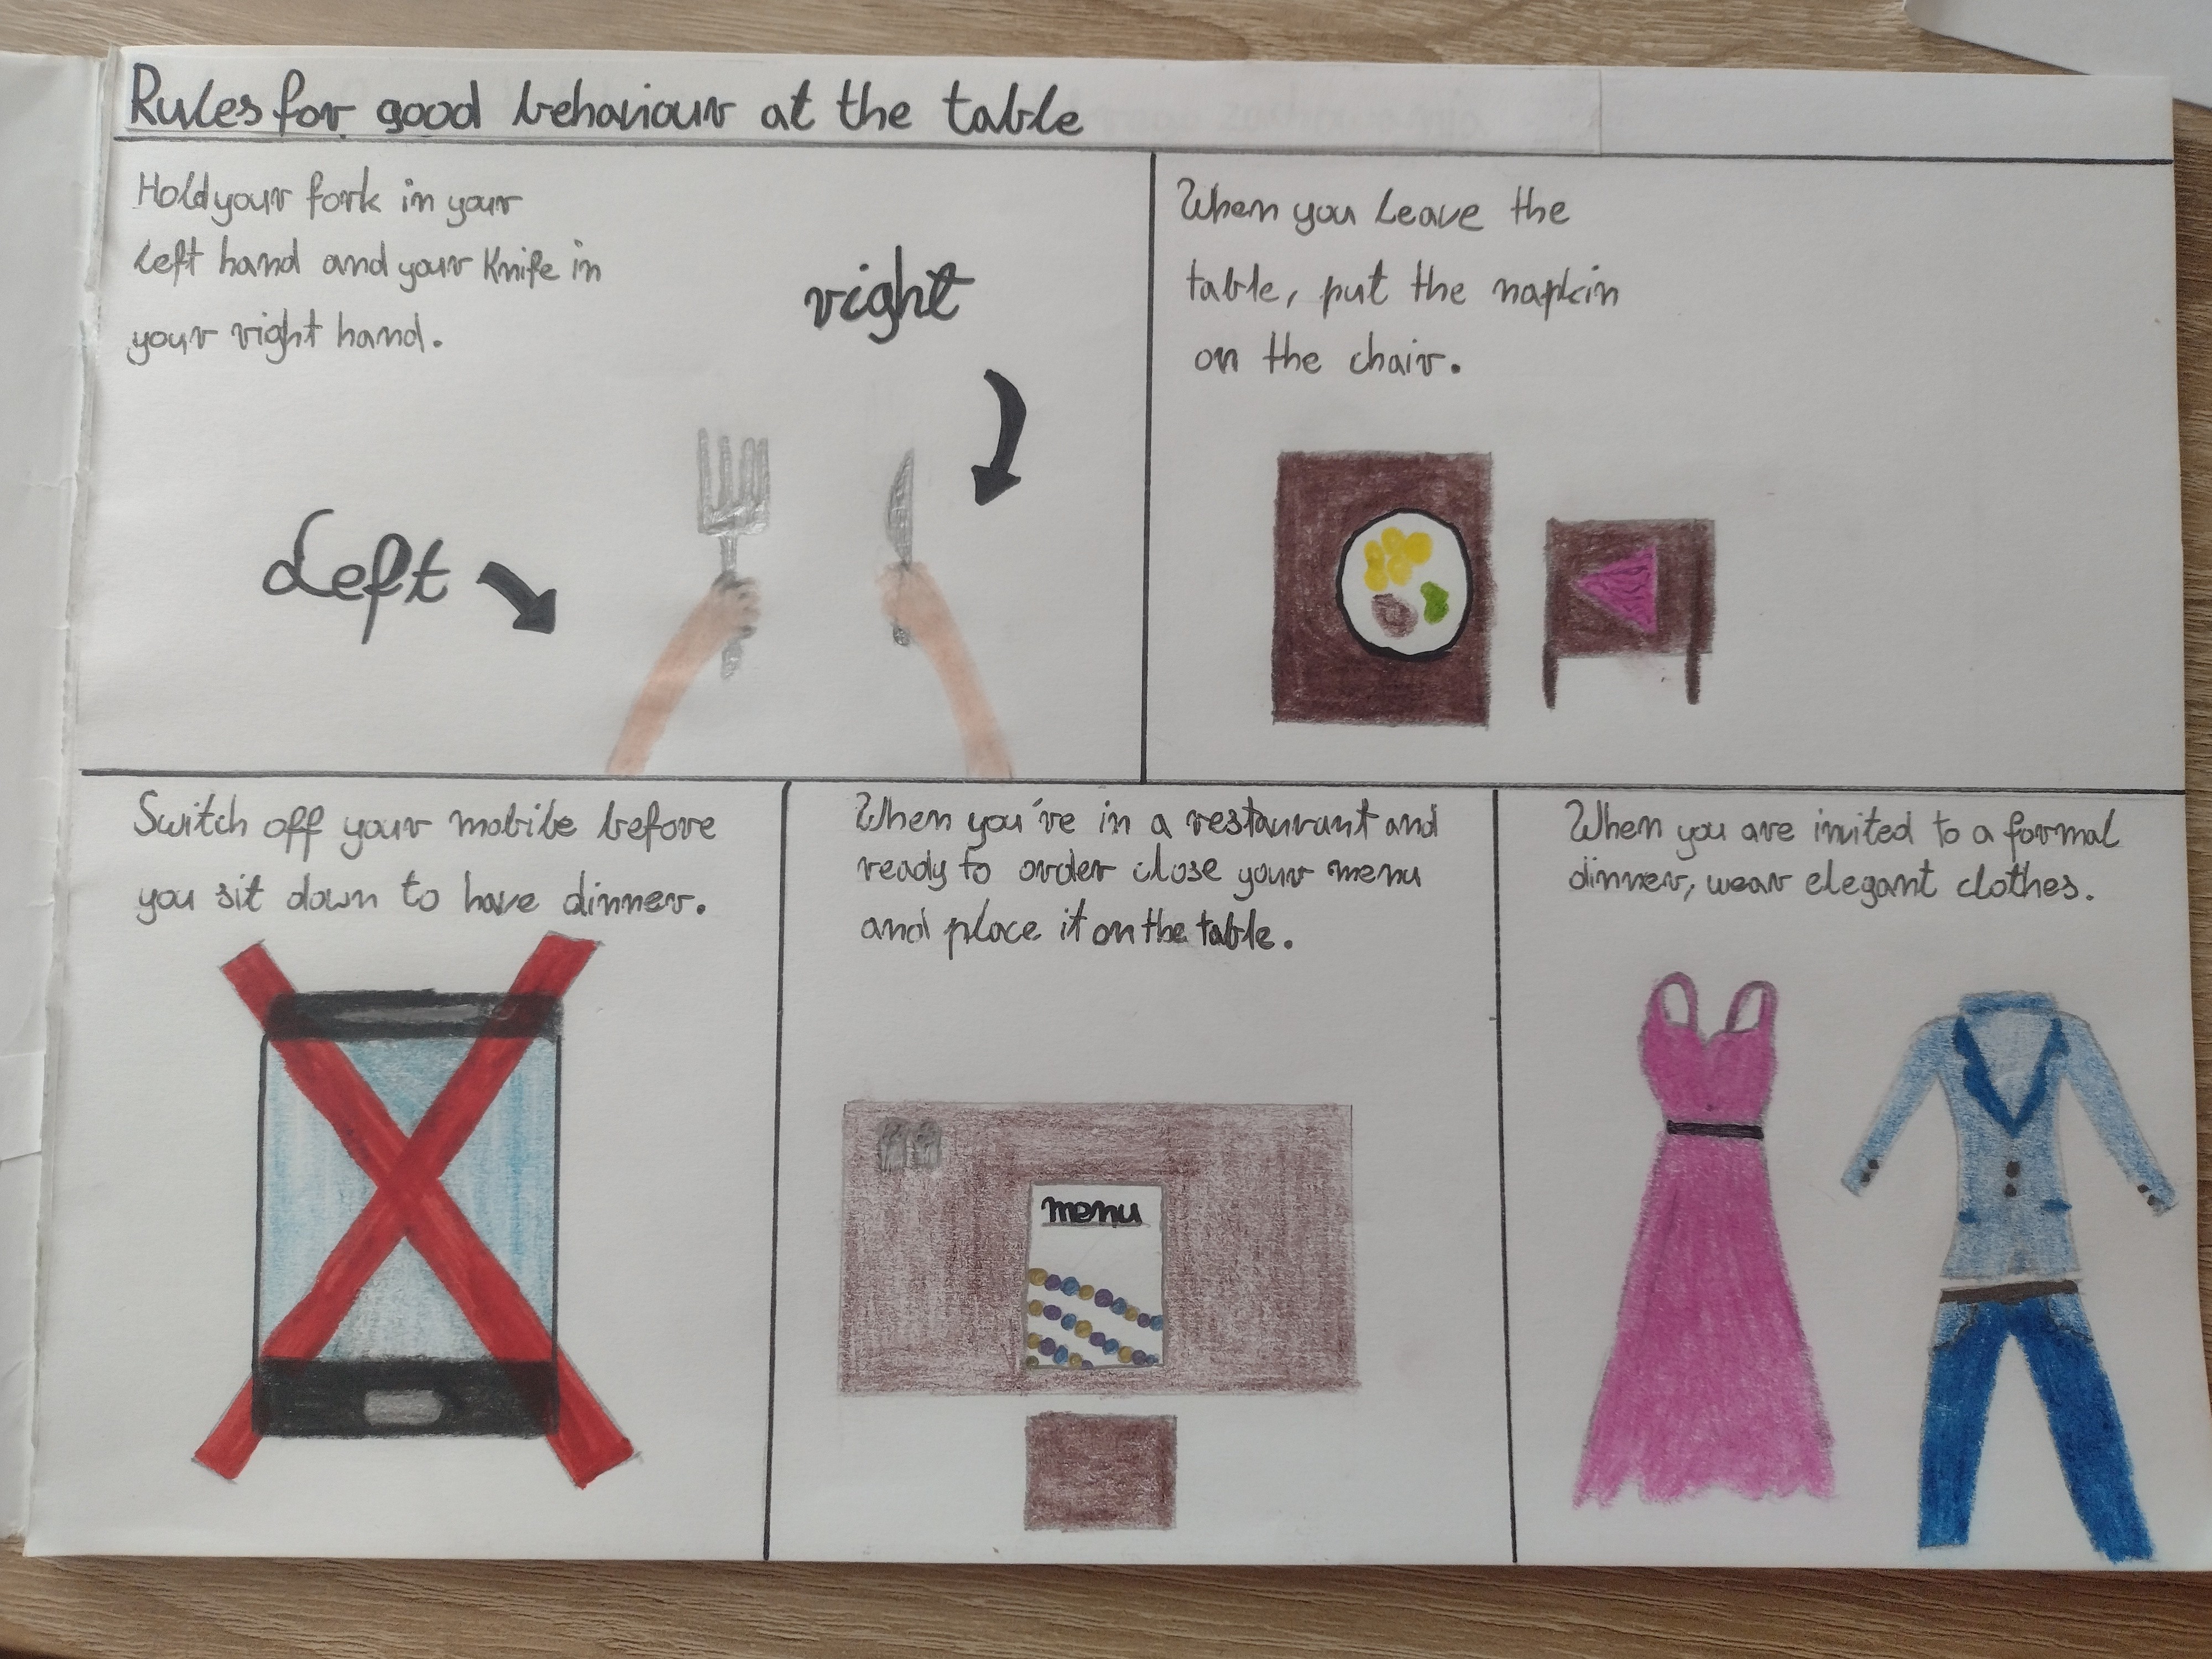 Rules for good behaviour at the table
Hold your fork in your
left hand and your knife in
your right hand.
right
Left
When you leave the
table, put the napkin
on the chair.
Switch off your mobile before
you sit down to have dinner.
When you've in a restaurant and
ready to order close your menu
and place it on the table.
menu
When you are invited to a formal
dinner, wear elegant clothes.